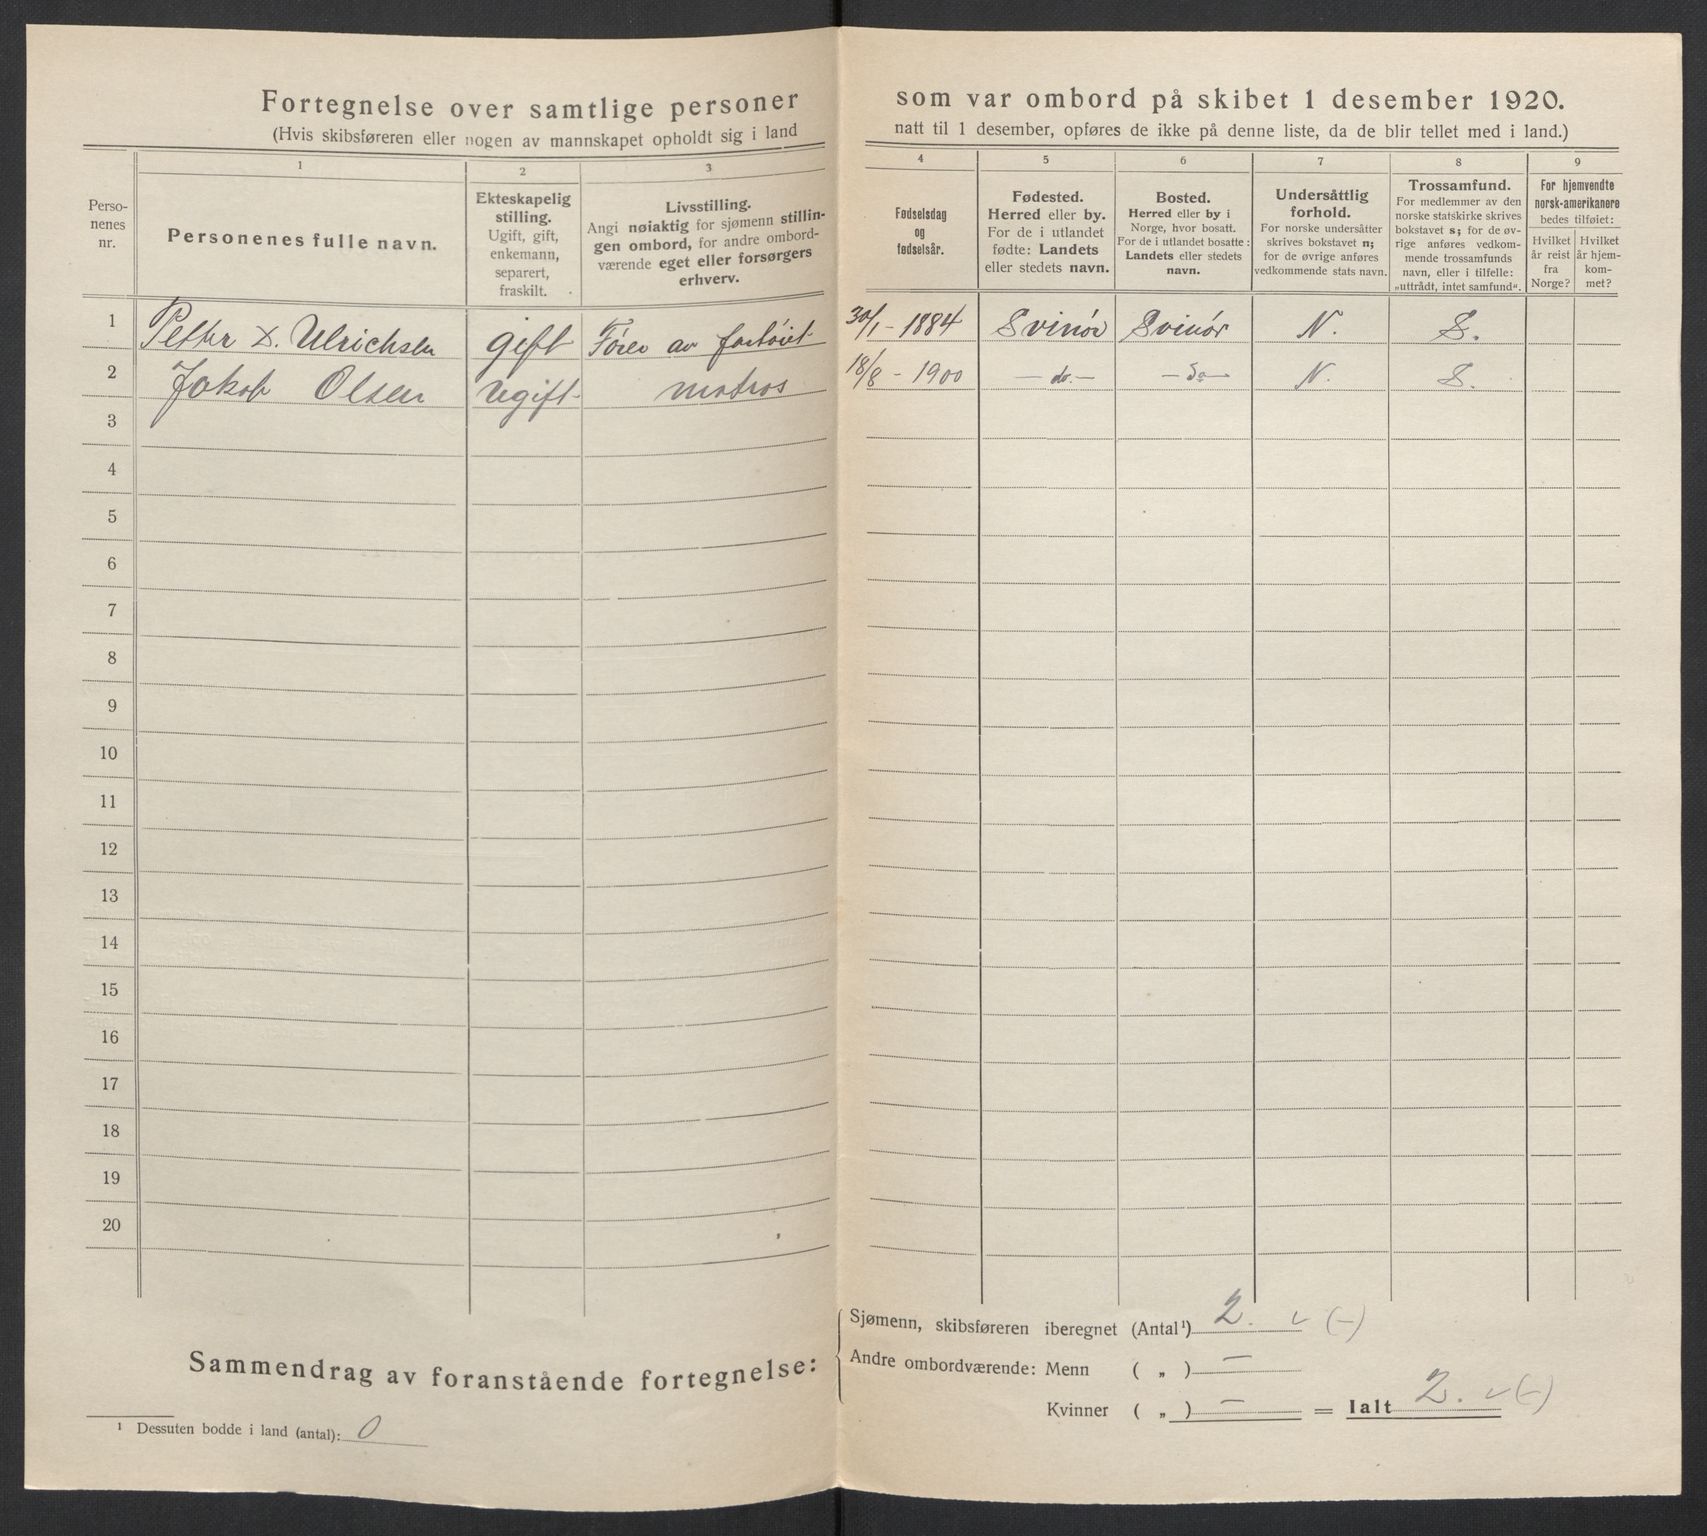 Fortegnelse over samtlige personer som var ombord på skibet 1 desember 1920.
(Hvis skibsføreren eller nogen av mannskapet opholdt sig i land natt til 1 desember, opføres de ikke på denne liste, da de blir tellet med i land.)
Perso-
nenes
nr.
1
Personenes fulle navn.
2
Ekteskapelig
stilling.
Ugift, gift,
enkemann,
separert,
fraskilt.
3
Livsstilling.
Angi nøiaktig for sjømenn stillin-
gen ombord, for andre ombord-
værende eget eller forsørgers
erhverv.
4
Fødselsdag
og
fødselsår.
5
Fødested.
Herred eller by.
For de i utlandet
fødte: Landets
eller stedets navn.
6
Bosted.
Herred eller by i
Norge, hvor bosatt.
For de i utlandet bosatte:
Landets eller stedets
navn.
7
Undersåttlig
forhold.
For norske undersåtter
skrives bokstavet n;
for de øvrige anføres
vedkommende stats navn.
8
Trossamfund.
For medlemmer av den
norske statskirke skrives
bokstavet s; for de øv-
rige anføres vedkom-
mende trossamfunds
navn, eller i tilfelle:
„uttrådt, intet samfund".
9
For hjemvendte
norsk-amerikanere
bedes tilføiet:
Hvilket
år reist
fra
Norge?
Hvilket
år hjem-
kom-
met?
1 Petter D. Ulrichsen gift Fører av fartøiet 30/1 - 1884 Svinör Svinör N. S.
2 Jakob Olsen Ugift matros 18/8 - 1900 - do. - - Do - N. S.
3
4
5
6
7
8
9
10
11
12
13
14
15
16
17
18
19
20
Sammendrag av foranstående fortegnelse:
Sjømenn, skibsføreren iberegnet (Antal¹) 2. v (-)
Andre ombordværende: Menn ( „ ) —
Kvinner ( „ ) — = Ialt 2. v (-)
¹ Dessuten bodde i land (antal): 0